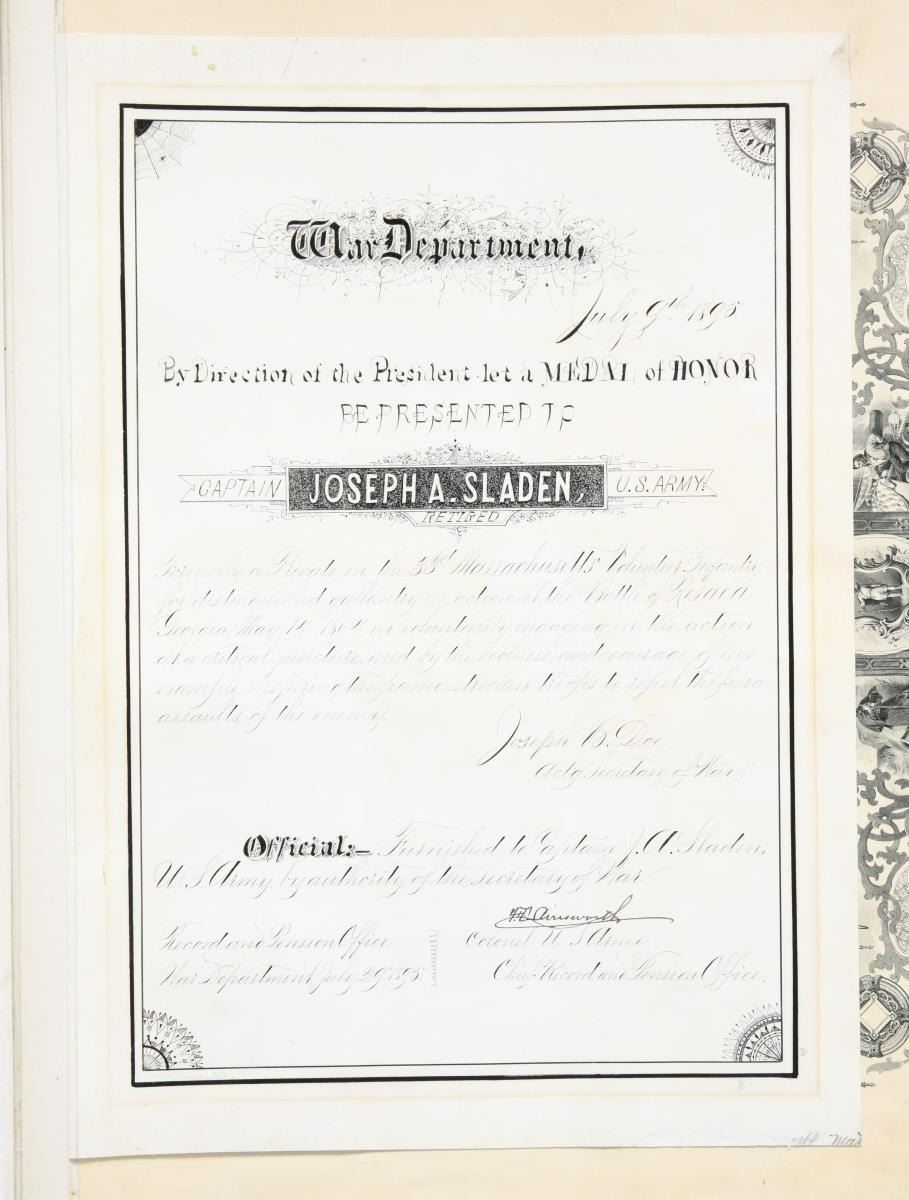 War Department,
July 9th 1895
By Direction of the President let a MEDAL of HONOR
BE PRESENTED TO
CAPTAIN JOSEPH A. SLADEN, U.S. ARMY.
RETIRED
Formerly a Private in the 33d Massachusetts Volunteer Infantry
for distinguished gallantry in action at the Battle of Resaca
Georgia, May 14, 1864 in voluntarily engaging in the action
at a critical juncture and by the coolness and courage of his
example inspiring the panic stricken troops to repel the
assaults of the enemy.
Joseph B. Doe
Actg Secretary of War.
Official:— Furnished to Captain J. A. Sladen,
U. S. Army by authority of the Secretary of War.
F.C. Ainsworth
Record and Pension Office Colonel U. S. Army.
War Department July 29, 1895. Chief Record and Pension Office.
8
8